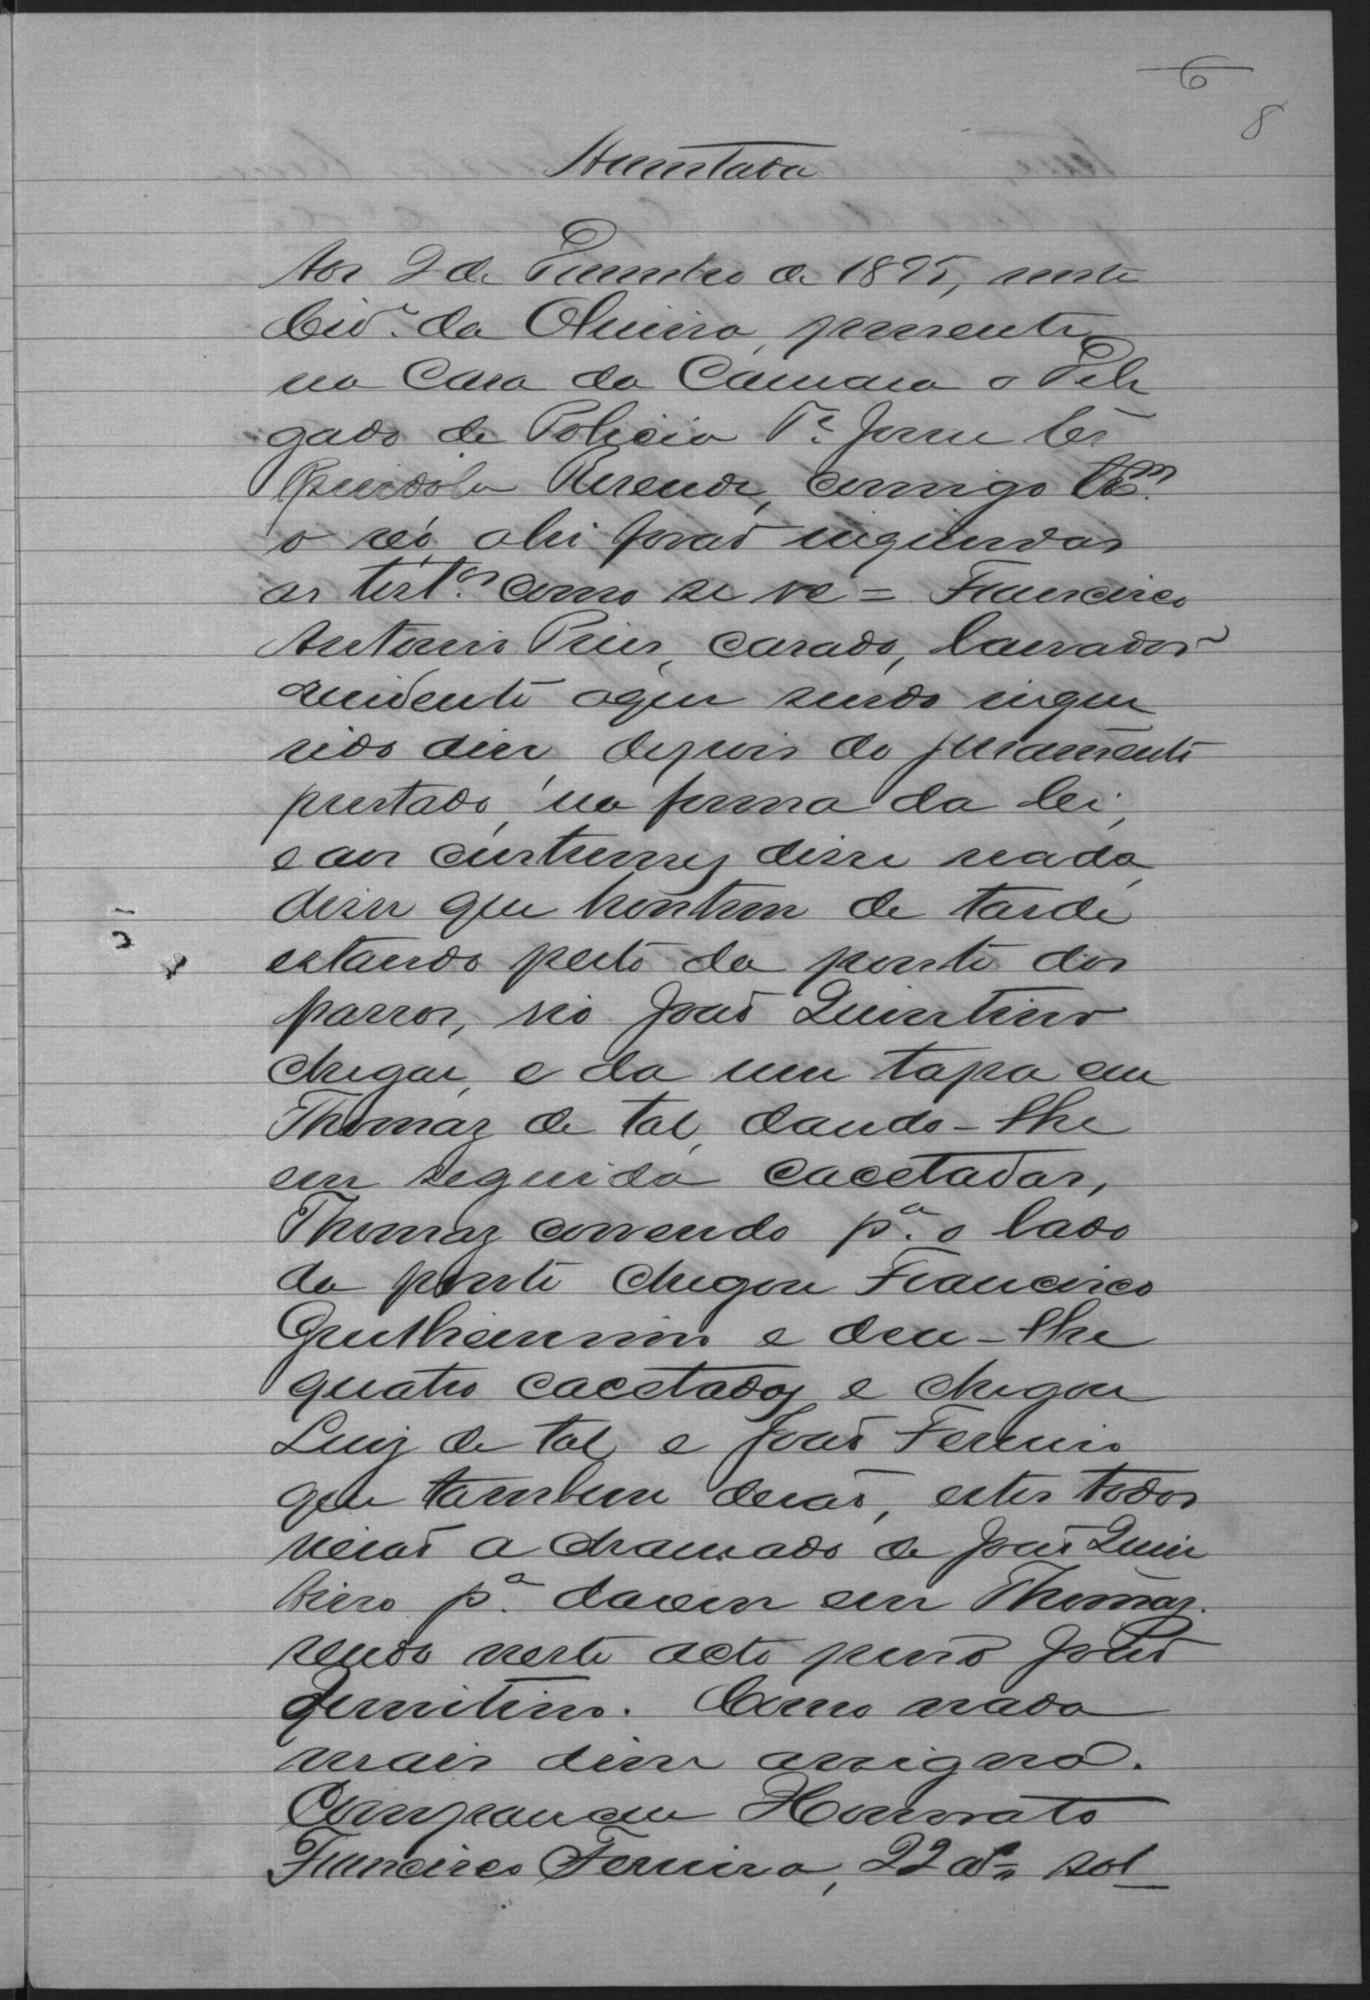 6
8
Assentada
Aos 2 de Dezembro de 1895, nesta
Cid.e da Oliveira, presente
na Casa da Camara o Dele
gado de Policia T.e
Resende, comigo
o reó, ahi foraõ inqueridas
as test.as como se vê = Francisco
Antonio Pires, casado, lavrador
residente aqui sendo inque
rido disse depois do juramento
prestado, na forma da lei,
e aos custumes disse nada,
disse que hontem de tarde
estando perto da ponte dos
passos, vio Joaõ Quintino
chegar, e da um tapa em
Thomaz de tal, dando-lhe
em seguida cacetadas,
Thomaz correndo p.a o lado
da ponte chegou Francisco
Guilhermino e deu-lhe
quatro cacetadas e chegou
Luiz de tal e Joaõ Ferreira
que tambem deraõ, estes todos
vieraõ a chamado de Joaõ Quin
tino p.a darem em Thomaz.
sendo neste acto preso Joaõ
Quintino. Como nada
mais disse assigna.
Compareceu Honorato
Francisco Ferreira, 22 a.s sol